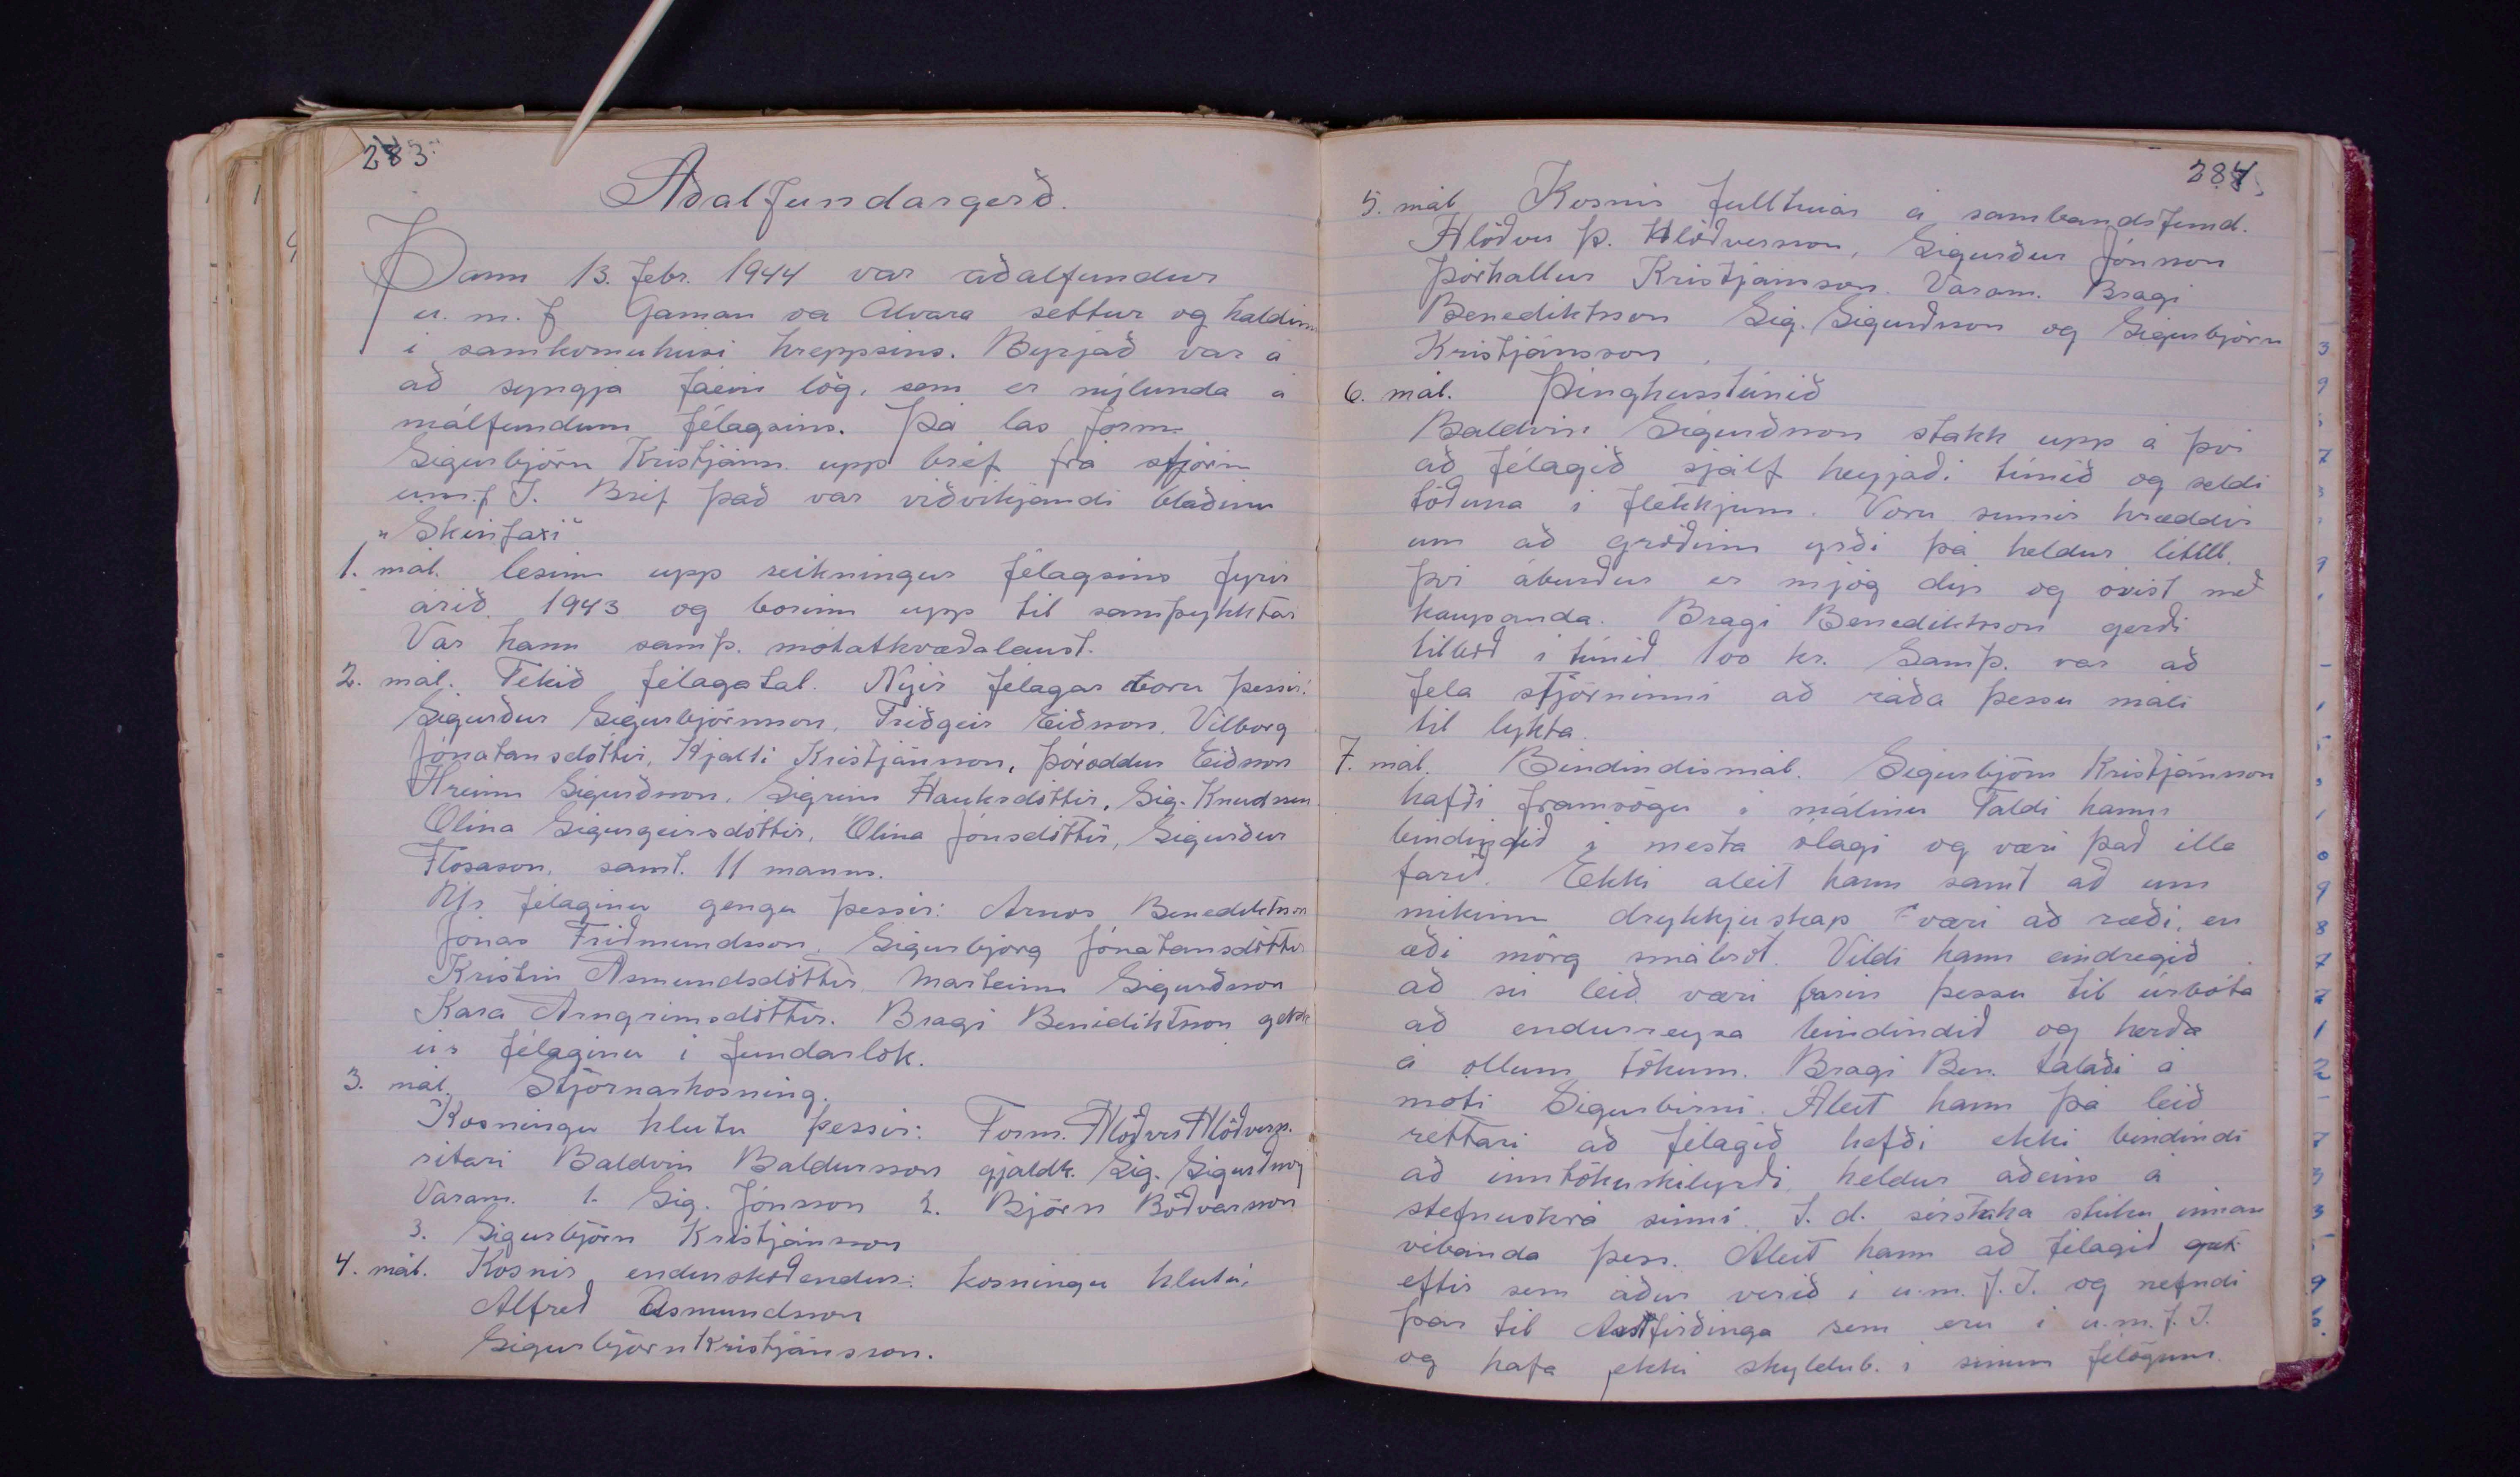 283
Aðalfundargerð.
Þann 13. febr. 1944 var aðalfundur
u. m. f Gaman og Alvara settur og haldinn
i samkomuhúsi hreppsins. Byrjað var á
að syngja fáein lög, sem er nýlunda á
málfundum félagsins. Þá las form.
Sigurbjörn Kristjánss. upp bréf frá stjórn
u.m.f. Í. Bréf það var viðvíkjandi blaðinu
"Skinfaxi"
1. mál. lesinn upp reikningur félagsins fyrir
árið 1943 og borinn upp til samþykktar
Var hann samþ. mótatkvæðalaust.
2. mál. Tekið félagatal. Nýir félagar voru þessir:
Sigurður Sigurbjörnsson, Friðgeir Eiðsson, Vilborg
Jónatansdóttir, Hjalti Kristjánsson, Þóroddur Eiðsson
Hreinn Sigurðsson, Sigrún Hauksdóttir, Sig. Knudsen
Ólína Sigurgeirsdóttir, Ólína Jónsdóttir, Sigurður
Flosason, samt. 11 manns.
Úr félaginu gengu þessir: Arnór Benediktsson
Jónas Friðmundsson, Sigurbjörg Jónatansdóttir
Kristín Ásmundsdóttir, Marteinn Sigurðsson
Kara Arngrímsdóttir. Bragi Benidiktsson gekk
úr félaginu í fundarlok.
3. mál. Stjórnarkosning.
Kosningu hlutu þessir: Form. Hlöðver Hlöðverss.
ritari Baldvin Baldursson gjaldk. Sig. Sigurðsson
Varam. 1. Sig. Jónsson 2. Björn Böðvarsson
3. Sigurbjörn Kristjánsson
4. mál. Kosnir endurskoðendur: kosningu hlutu:
Alfreð Ásmundsson
Sigurbjörn Kristjánsson.
284
5. mál Kosnir fulltrúar á sambandsfund.
Hlöðver Þ. Hlöðversson, Sigurður Jónsson
Þórhallur Kristjánsson. Varam. Bragi
Benediktsson Sig. Sigurðsson og Sigurbjörn
Kristjánsson.
6. mál. Þinghústúnið
Baldvin Sigurðsson stakk upp á því
að félagið sjálf heyjaði túnið og seldi
töðuna í flekkjum. Voru sumir hræddir
um að gróðinn yrði þá heldur lítill.
því áburður er mjög dýr og óvíst með
kaupanda. Bragi Benediktsson gerði
tilboð í túnið 100 kr. Samþ. var að
fela stjórninni að ráða þessu máli
til lykta.
7. mál. Bindindismál. Sigurbjörn Kristjánsson
hafði framsögu í málinu Taldi hann
bindindið í mesta ólagi og væri það illa
farið. Ekki áleit hann samt að um
mikinn drykkjuskap væri að ræði, en
æði mörg smábrot. Vildi hann eindregið
að sú leið væri farin þessu til úrbóta
að endurreysa bindindið og herða
á öllum tökum. Bragi Ben. talaði á
móti Sigurbirni. Áleit hann þá leið
réttari að félagið hefði ekki bindindi
að inntökuskilyrði, heldur aðeins á
stefnuskrá sinni. t. d. sérstaka stúku innan
vébanda þess. Áleit hann að félagið gæti
eftir sem áður verið í u.m.f.Í. og nefndi
þar til Austfirðinga sem eru í u.m.f.Í.
og hafa ekki skyldub. í sínum félögum.